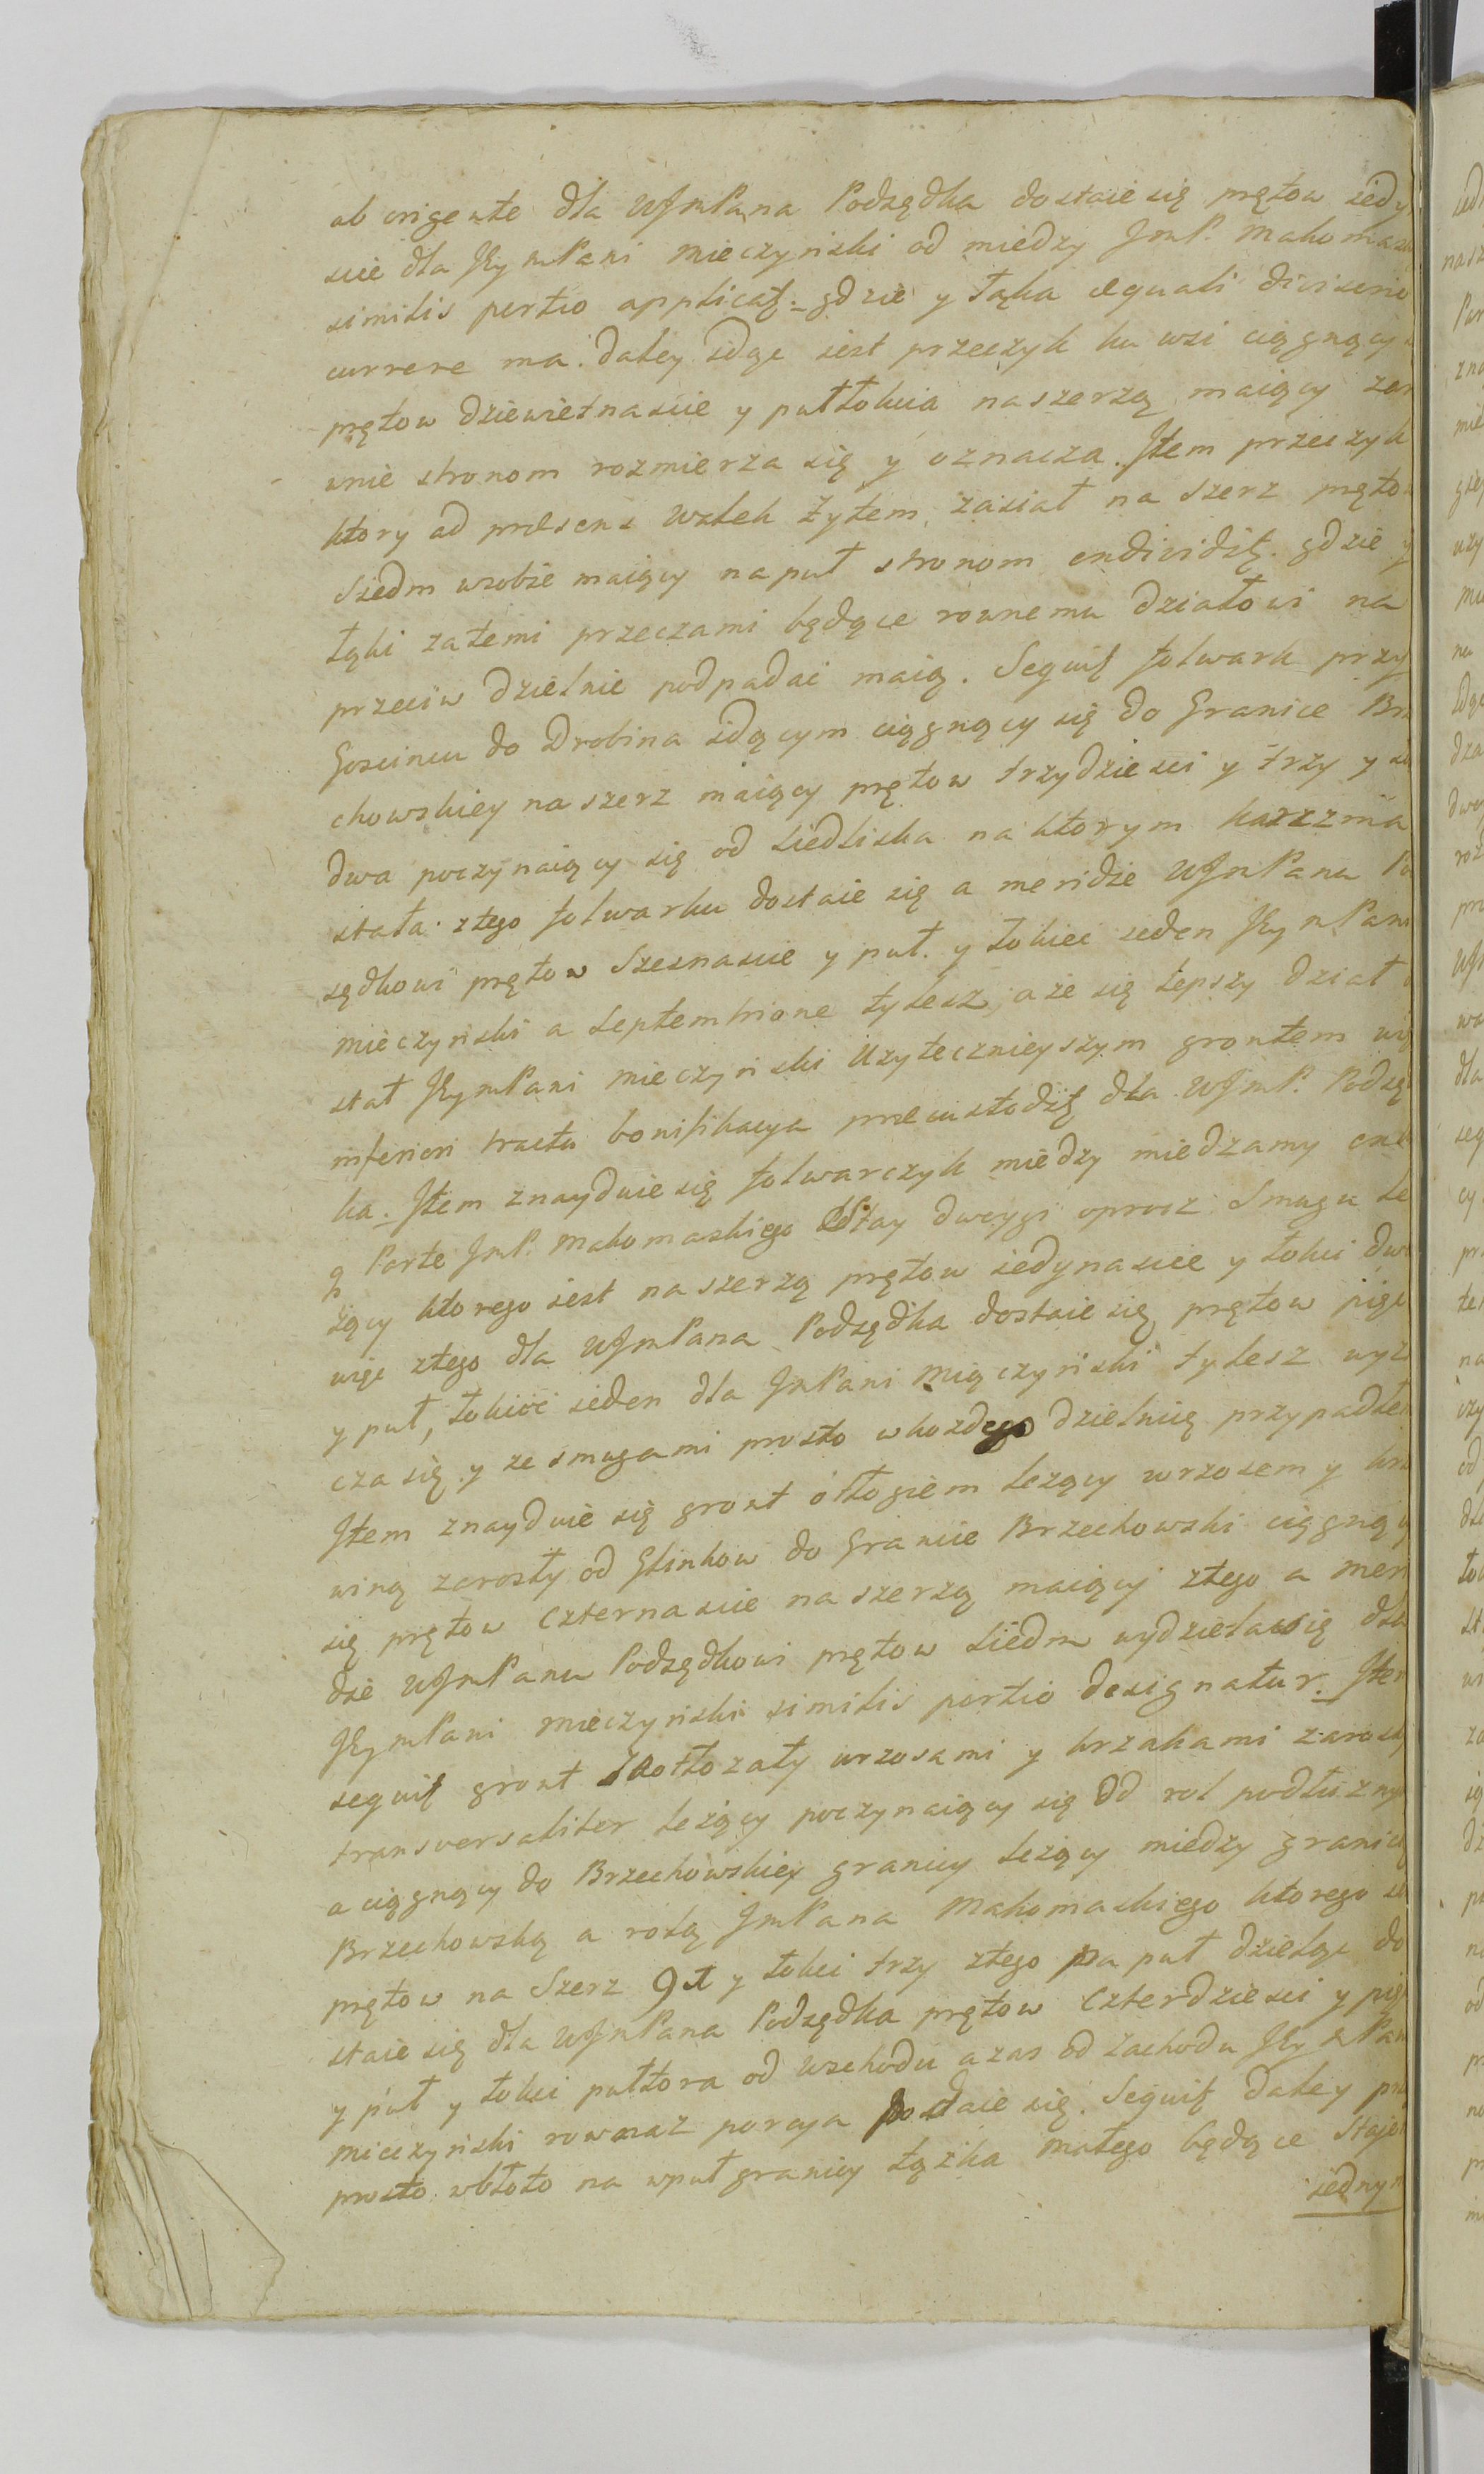 ab origente dla WJmPana Podsędka dostaie się prętow iedy
scie dla JeymPani Mieczyński od miedzy JmP. Makomas
similis portio applicaţ. gdzie y łąka aequali divisione
currere ma. Daley idąc iest przeczyk ku wsi ciągnący
prętow dziewietnascie y puł łokcia na szerzą maiący
wnie stronom rozmierza się y oznacza. Jtem przeczyk
ktory ad praesens Wstek żytem zasiał na Szerz pręto
Siedm wsobie maiący na puł stronom individiţ. gdzie y
łąki zatemi przeczami będące rownemu działowi na
przeciw dzielnie podpadać maią. Sequiţ folwark przy
Goscincu do Drobina idącym ciągnący się do Granice Brz
chowskiey na szerz maiący prętow trzydziesci y trzy y
dwa poczynaiący się od siedliska na ktorym karczma
stała. ztego folwarku dostaie się a meridie WJmPanu Po
sędkowi prętow Szesnascie y puł. y łokieć ieden JeymPani
Mieczyński a Septemtrione tylesz, a że się lepszy dział
stał JeymPani Mieczyński Użytecznieyszym grontem
inferiori tractu bonifikacya praecustodiţ dla WJmP. Podsę
ka. Jtem znayduie się folwarczyk między miedzamy
Parte JmP. Makomaskiego Stay dwoygi oprocz Smugu le
żący ktorego iest na szerzą prętow iedynascie y łokci dwa
więc ztego dla WJmPana Podsędka dostaie się prętow pięć
y puł, łokieć ieden dla JmPani Miączyński tylesz wyz
cza się y ze smugami prosto wkożdego dzielnicę przypadłe
Jtem znayduie się gront odłogiem leżący wrzosem y
winą zarosły od Glinkow do Granice Brzechowski ciągnący
się prętow czternascie na szerzą maiący ztego a meri
die WJmPanu Podsędkowi prętow Siedm wydziela się dla
JeymPani Mieczyński similis portio designatur. Jtem
sequiţ gront zaołożały wrzosami y krzakami zarosły
transversaliter leżący poczynaiący się od rol podłużnych
a ciągnący do Brzechowskiey granicy leżący między granicą
Brzechowską a rolą JmPana Makomaskiego ktorego
prętow na Szerz 91 y łokci trzy ztego na puł dzieląc do
staie się dla WJmPana Podsędka prętow czterdziesci y pięć
y puł y łokci pułtora od wschodu azas od Zachodu JeymPani
Mieczyński rownaz porcya dostaie się. Sequiţ daley
prosto wbłoto na wpuł granicy łążka małego będące Staje
iednym